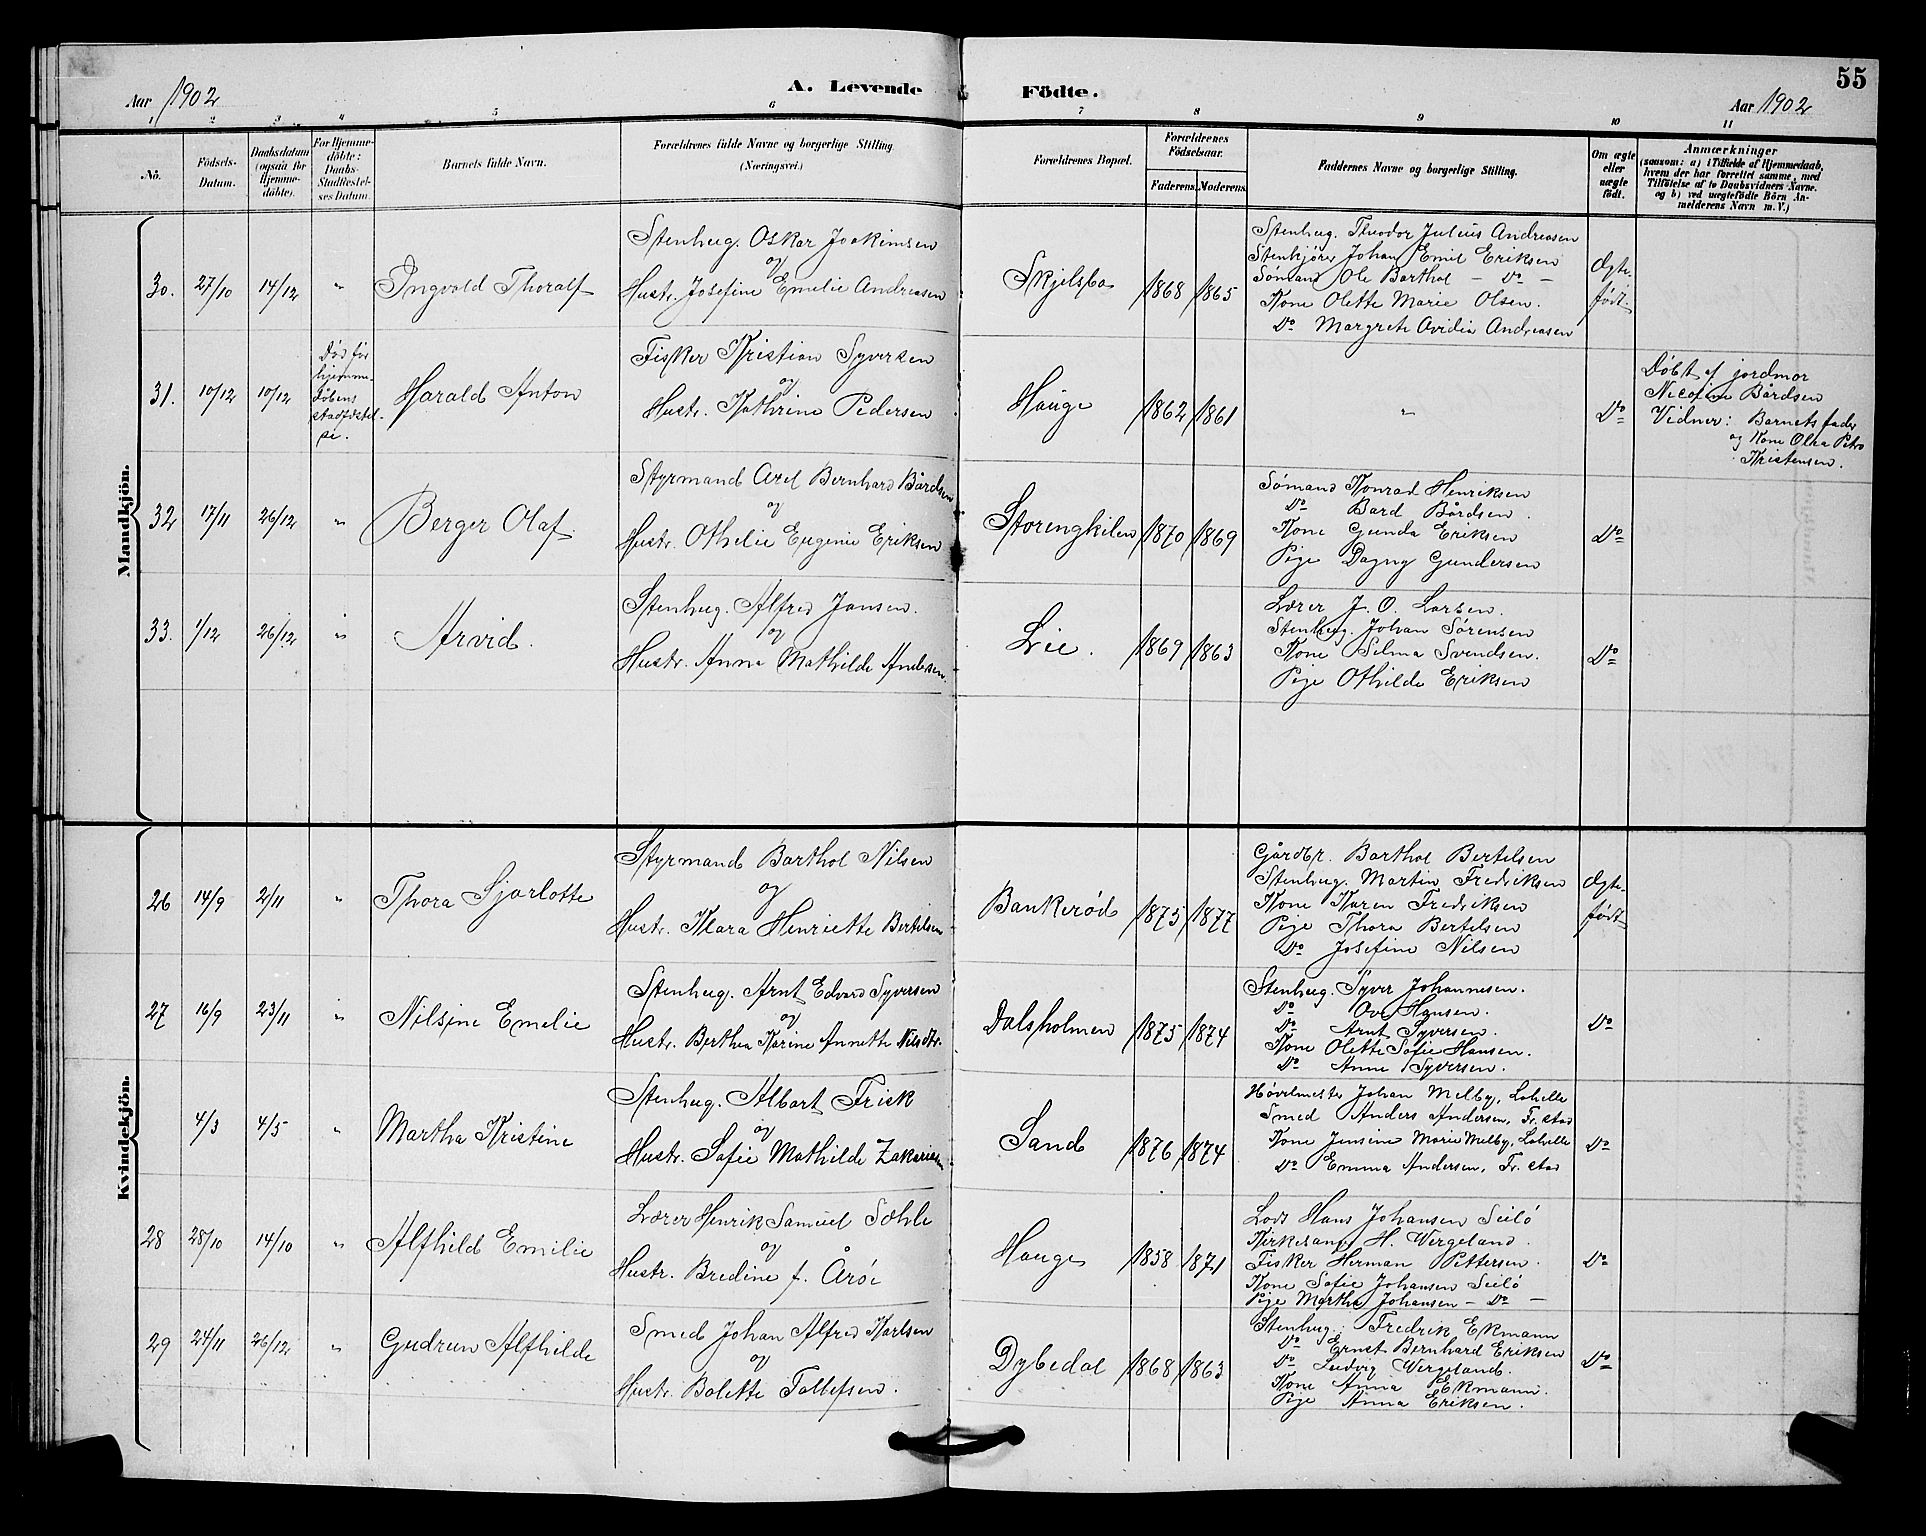 55
Aar 1902
A. Levende Födte.
Aar 1902
1 2 3 4 5 6 7 8 9 10 11
No.
Födsels-Datum.
Daabsdatum (ogsaa for Hjemmedöbte).
For Hjemmedöbte: Daabs-Stadfæstelses Datum.
Barnets fulde Navn.
Forældrenes fulde Navne og borgerlige Stilling (Næringsvei.)
Forældrenes Bopæl.
Forældrenes Födselsaar.
Faderens Moderens
Faddernes Navne og borgerlige Stilling.
Om ægte eller uægte födt.
Anmærkninger
(saasom: a) i Tilfælde af Hjemmedaab, hvem der har forrettet samme, med Tilföielse af to Daabsvidners Navne. og b) ved uægtefödte Börn Anmelderens Navn m. V.)
Mandkjön.
30. 27/10 14/12 " Ingvald Thoralf
Stenhug. Oskar Joakimsen
og
Hustr. Josefine Emelie Andreasen
Skjelsbo 1868 1865
Stenhug. Theodor Julius Andreasen
Stenkjører Johan Emil Eriksen
Sømand Ole Barthol – Do –
Kone Olette Marie Olsen.
Do Margrete Avidia Andreasen
Ægte født
31. 10/12 10/12
Død før
hjemme-
døbens
stadfæstel-
se.
Harald Anton
Fisker Kristian Syversen
og
Hustr. Kathrine Pedersen
Hauge 1862 1861 " Do
Døbt af jordmor
Nicoline Bårdsen
Vidner: Barnets fader
og Kone Olea Petra
Kristensen.
32 17/11 26/12 " Berger Olaf
Styrmand Axel Bernhard Bårdsen
og
Hustr. Othelie Eugenie Eriksen
Storengkilen 1870 1869
Sømand Konrad Henriksen
Do Bard Bårdsen
Kone Gunda Eriksen
Pige Dagny Gundersen
Do
33. 1/12 26/12 " Arvid.
Stenhug. Alfred Jansen.
og
Hustr. Anna Mathilde Andersen.
Lie. 1869 1863
Lærer J. O. Larsen.
Stenhug. Johan Sørensen
Kone Selma Svendsen.
Pige Othilde Eriksen
Do
Kvindekjön.
26 14/9 2/11 " Thora Sjarlotte
Styrmand Barthol Nilsen
og
Hustr. Klara Henriette Bertelsen
Bankerød 1875 1877
Gårdbr. Barthol Bertelsen
Stenhug. Martin Fredriksen
Kone Karen Fredriksen
Pige Thora Bertelsen
Do Josefine Nilsen
Ægte født
27 16/9 23/11 " Nilsine Emelie
Stenhug. Arnt Edvard Syversen
og
Hustr. Berthea Karine Annette Nilsdtr.
Dalsholmen 1875 1874
Stenhug. Syver Johannesen.
Do Ove Hansen.
Do Arnt Syversen.
Kone Olette Sofie Hansen.
Do Anne Syversen.
Do
4/3 4/5 " Martha Kristine
Stenhug. Albart Frisk
og
Hustr. Sofie Mathilde Zakariasen
Sand 1876 1874
Høvelmester Johan Melby, Lahelle
Smed Anders Andersen, Fr.stad
Kone Jensine Marie Melby, Lahelle
Do Emma Andersen, Fr.stad
Do
28 28/10 14/10 " Alfhild Emilie
Lærer Henrik Samuel Sæhle
og
Hustr. Bredine f. Årøe
Hauge 1858 1871
Lods Hans Johansen Seilø
Kirkesang. H. Wergeland.
Fisker Herman Pettersen.
Kone Sofie Johansen Seilø
Pige Martha Johansen – Do –
Do
29 24/11 26/12 " Gudrun Alfhilde
Smed Johan Alfred Karlsen
og
Hustr. Bolette Tollefsen.
Dybedal 1868 1863
Stenhug. Fredrik Ekmann
Do Ernst Bernhard Eriksen
Do Ludvig Wergeland.
Kone Anna Ekmann.
Pige Anna Eriksen.
Do